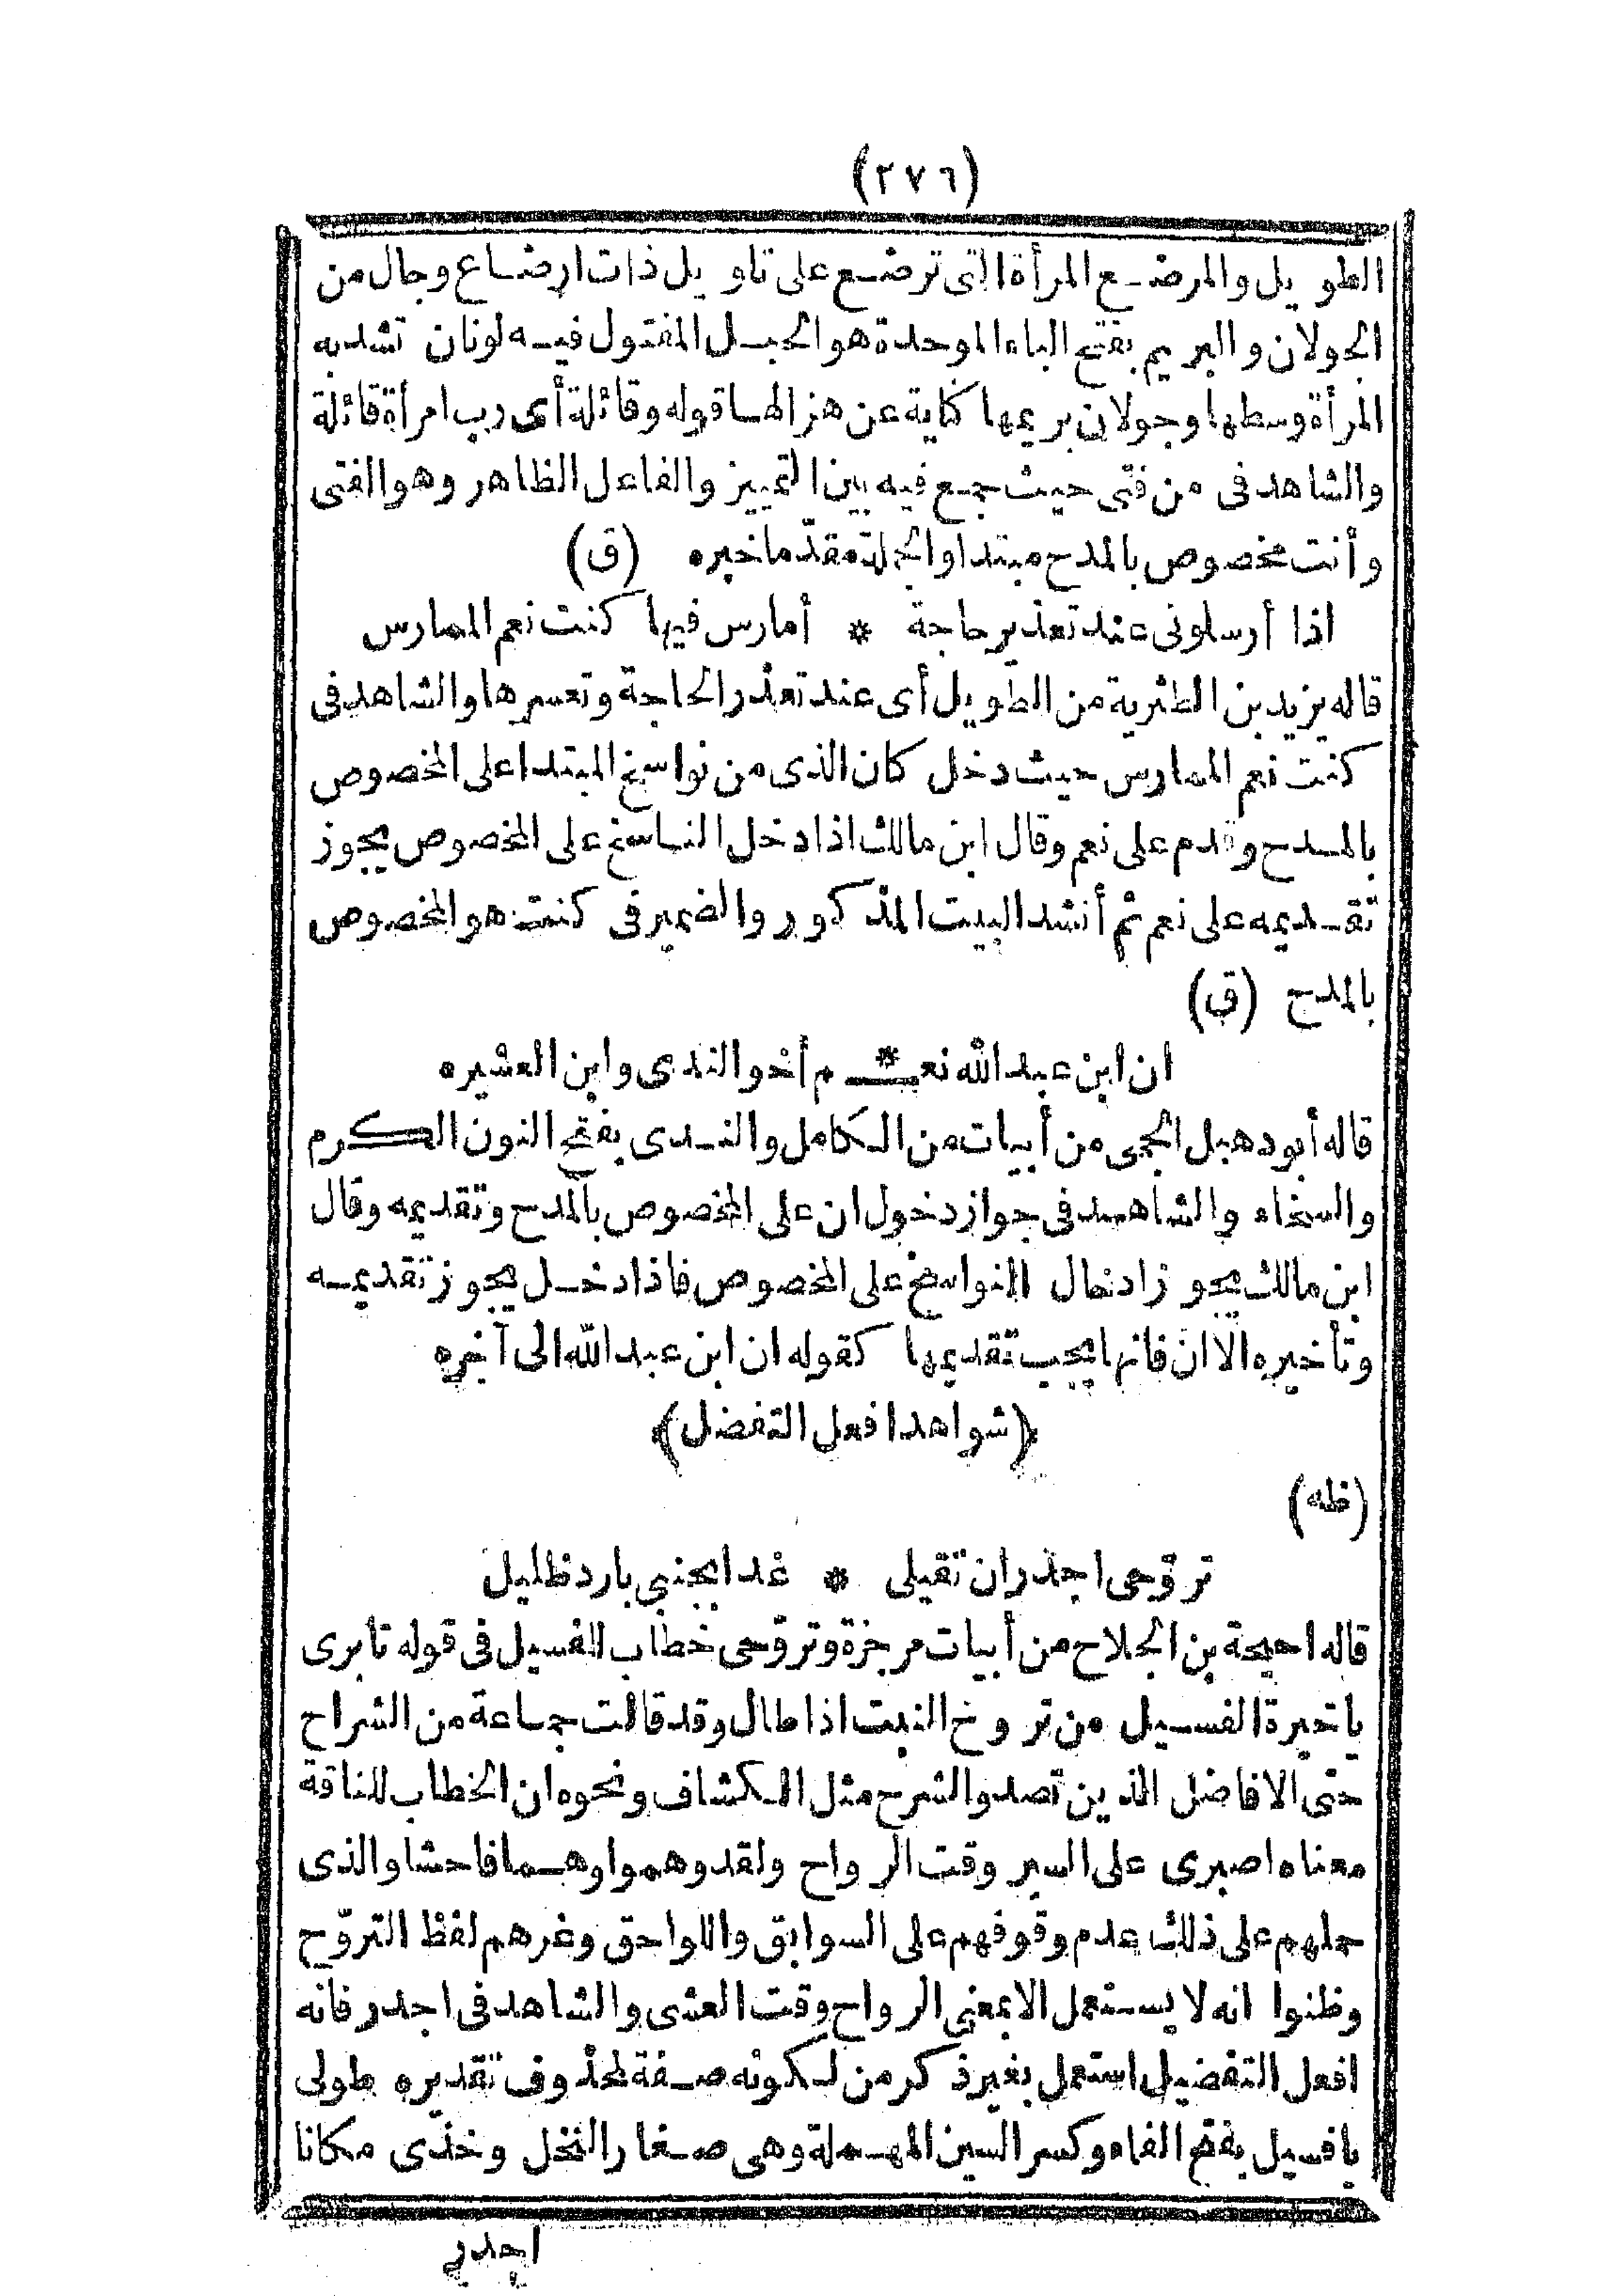 (٢٧٦)
الطويل والمرضع المرأة التى ترضع على تاويل ذات ارضاع وجال من
الجولان والبريم بفتح الباء الموحدة هو الحبل المفتول فيه لونان تشد به
المرأة وسطها وجولان بريمها كناية عن هزالها قوله وقائلة أى رب امرأة قائلة
والشاهد فى من فتى حيث جمع فيه بين التمييز والفاعل الظاهر وهو الفتى
وأنت مخصوص بالمدح مبتدا والجملة مقدّما خبره (ق)
اذا أرسلونى عند تعذير حاجة * أمارس فيها كنت نعم الممارس
قاله يزيد بن الطثرية من الطويل أى عند تعذر الحاجة وتعسرها والشاهد فى
كنت نعم الممارس حيث دخل كان الذى من نواسخ المبتدا على المخصوص
بالمدح وقدم على نعم وقال ابن مالك اذا دخل الناسخ على المخصوص يجوز
تقديمه على نعم ثم أنشد البيت المذكور والضمير فى كنت هو المخصوص
بالمدح (ق)
ان ابن عبد الله نعـ * ـم أخو الندى وابن العشيره
قاله أبو دهبل الجمحى من أبيات من الكامل والندى بفتح النون الكرم
والسخاء والشاهد فى جواز دخول ان على المخصوص بالمدح وتقديمه وقال
ابن مالك يجوز ادخال النواسخ على المخصوص فاذا دخل يجوز تقديمه
وتأخيره الا انّ فانها يجب تقديمها كقوله ان ابن عبد الله الى آخره
﴿شواهد افعل التفضل﴾
(ظه)
تروّحى اجدر ان تقيلى * غدا بجنبى بارد ظليل
قاله احيحة بن الجلاح من أبيات مرجزة وتروّحى خطاب للفسيل فى قوله تابرى
يا خيرة الفسيل من تروح النبت اذا طال وقد قالت جماعة من الشراح
حتى الافاضل الذين تصدوا لشرح مثل الكشاف ونحوه ان الخطاب للناقة
معناه اصبرى على السير وقت الرواح ولقد وهموا وهما فاحشا والذى
حملهم على ذلك عدم وقوفهم على السوابق واللواحق وغرهم لفظ التروّح
وظنوا انه لا يستعمل الا بمعنى الرواح وقت العشى والشاهد فى اجدر فانه
افعل التفضيل استعمل بغير ذكر من لكونه صفة لمحذوف تقديره طولى
يا فسيل بفتح الفاء وكسر السين المهملة وهى صغار النخل وخذى مكانا
اجدر